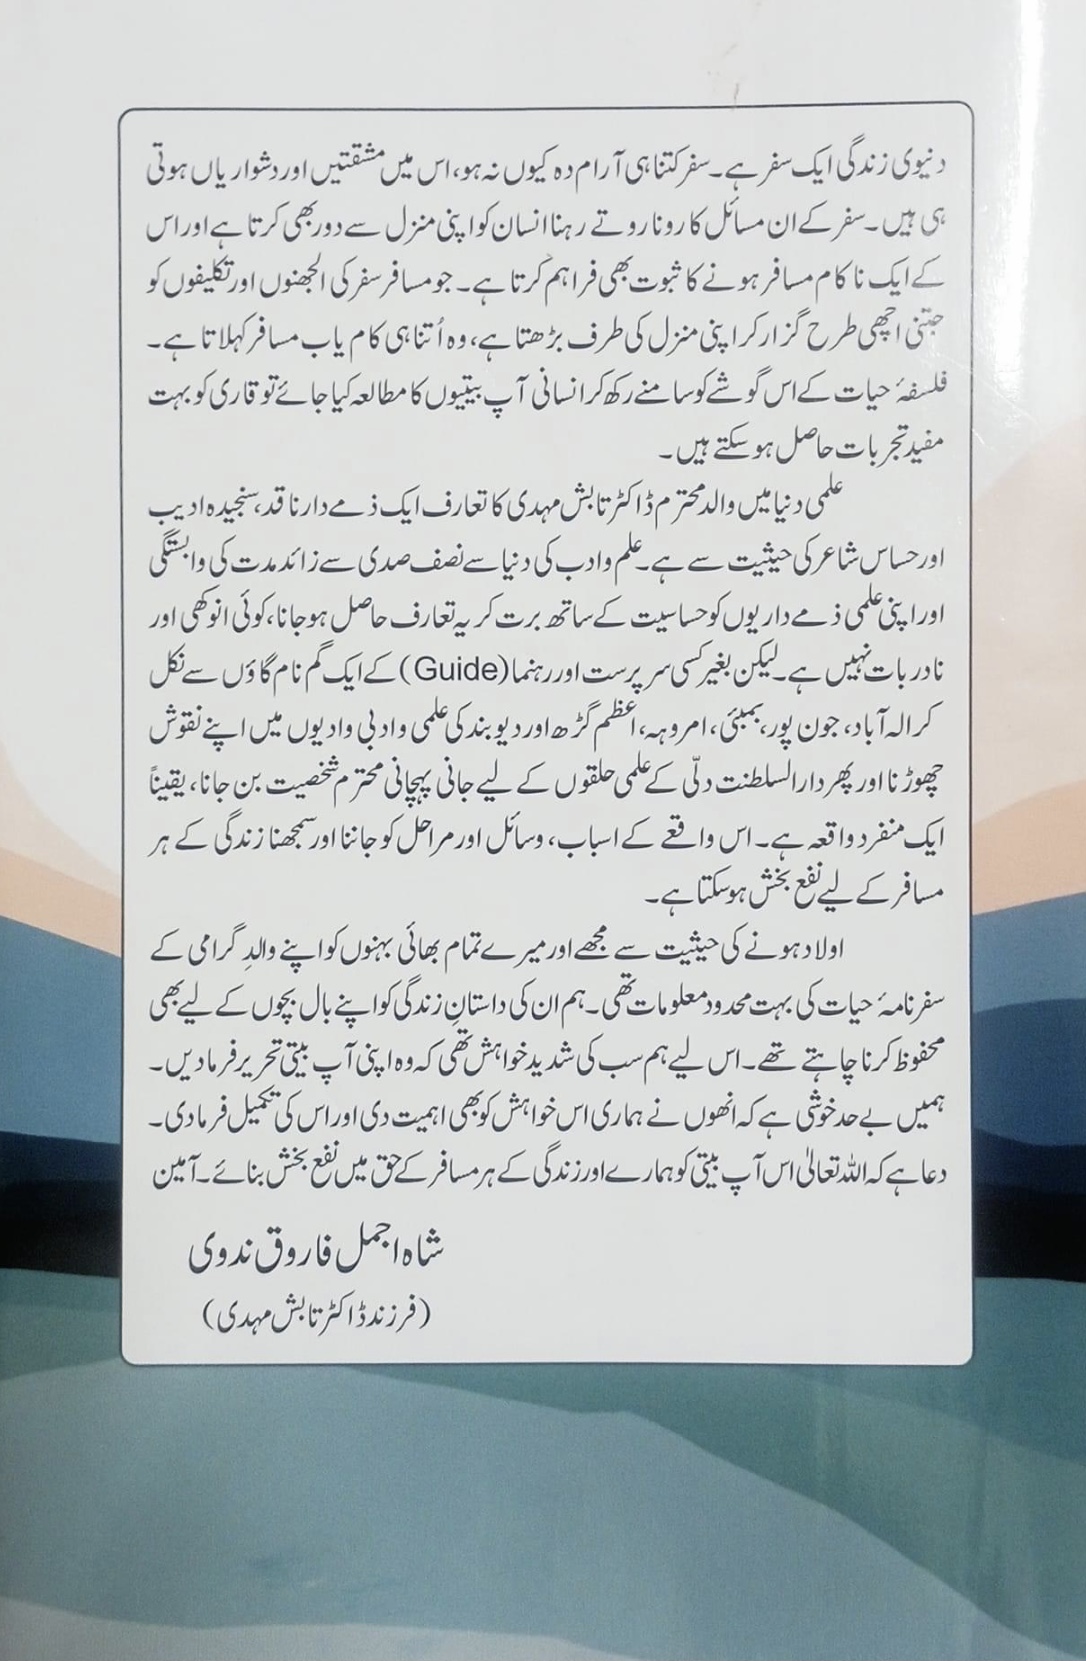 دنیوی زندگی ایک سفر ہے۔ سفر کتنا ہی آرام دہ کیوں نہ ہو، اس میں مشقتیں اور دشواریاں ہوتی
ہی ہیں۔ سفر کے ان مسائل کا رونا روتے رہنا انسان کو اپنی منزل سے دور بھی کرتا ہے اور اس
کے ایک ناکام مسافر ہونے کا ثبوت بھی فراہم کرتا ہے۔ جو مسافر سفر کی الجھنوں اور تکلیفوں کو
جتنی اچھی طرح گزار کر اپنی منزل کی طرف بڑھتا ہے، وہ اُتنا ہی کام یاب مسافر کہلاتا ہے۔
فلسفۂ حیات کے اس گوشے کو سامنے رکھ کر انسانی آپ بیتیوں کا مطالعہ کیا جائے تو قاری کو بہت
مفید تجربات حاصل ہو سکتے ہیں۔
علمی دنیا میں والد محترم ڈاکٹر تابش مہدی کا تعارف ایک ذمے دار ناقد، سنجیدہ ادیب
اور حساس شاعر کی حیثیت سے ہے۔ علم و ادب کی دنیا سے نصف صدی سے زائد مدت کی وابستگی
اور اپنی علمی ذمے داریوں کو حساسیت کے ساتھ برت کر یہ تعارف حاصل ہو جانا، کوئی انوکھی اور
نادر بات نہیں ہے۔ لیکن بغیر کسی سرپرست اور رہنما (Guide) کے ایک گم نام گاؤں سے نکل
کر الہ آباد، جون پور، بمبئی، امروہہ، اعظم گڑھ اور دیوبند کی علمی و ادبی وادیوں میں اپنے نقوش
چھوڑنا اور پھر دارالسلطنت دلّی کے علمی حلقوں کے لیے جانی پہچانی محترم شخصیت بن جانا، یقیناً
ایک منفرد واقعہ ہے۔ اس واقعے کے اسباب، وسائل اور مراحل کو جاننا اور سمجھنا زندگی کے ہر
مسافر کے لیے نفع بخش ہو سکتا ہے۔
اولاد ہونے کی حیثیت سے مجھے اور میرے تمام بھائی بہنوں کو اپنے والدِ گرامی کے
سفرنامۂ حیات کی بہت محدود معلومات تھی۔ ہم ان کی داستانِ زندگی کو اپنے بال بچوں کے لیے بھی
محفوظ کرنا چاہتے تھے۔ اس لیے ہم سب کی شدید خواہش تھی کہ وہ اپنی آپ بیتی تحریر فرما دیں۔
ہمیں بے حد خوشی ہے کہ انھوں نے ہماری اس خواہش کو بھی اہمیت دی اور اس کی تکمیل فرما دی۔
دعا ہے کہ اللہ تعالیٰ اس آپ بیتی کو ہمارے اور زندگی کے ہر مسافر کے حق میں نفع بخش بنائے۔ آمین
شاہ اجمل فاروق ندوی
(فرزند ڈاکٹر تابش مہدی)